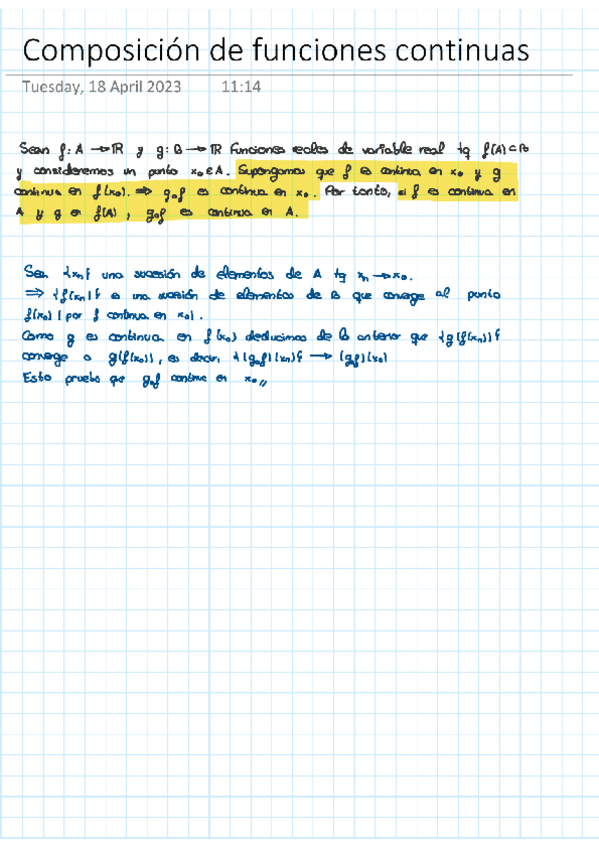 Composición de funciones continuas
Tuesday, 18 April 2023 11:14
Sean f: A → IR y g: B → IR funciones reales de variable real tq f(A) ⊂ B
y consideremos un punto x₀ ∈ A. Supongamos que f es continua en x₀ y g
continua en f(x₀). ⇒ g∘f es continua en x₀. Por tanto, si f es continua en
A y g en f(A), g∘f es continua en A.
Sea {xₙ} una sucesión de elementos de A tq xₙ → x₀.
⇒ {f(xₙ)} es una sucesión de elementos de B que converge al punto
f(x₀) (por f continua en x₀).
Como g es continua en f(x₀) deducimos de lo anterior que {g(f(xₙ))}
converge a g(f(x₀)), es decir, {(g∘f)(xₙ)} → (g∘f)(x₀)
Esto prueba que g∘f continua en x₀,,